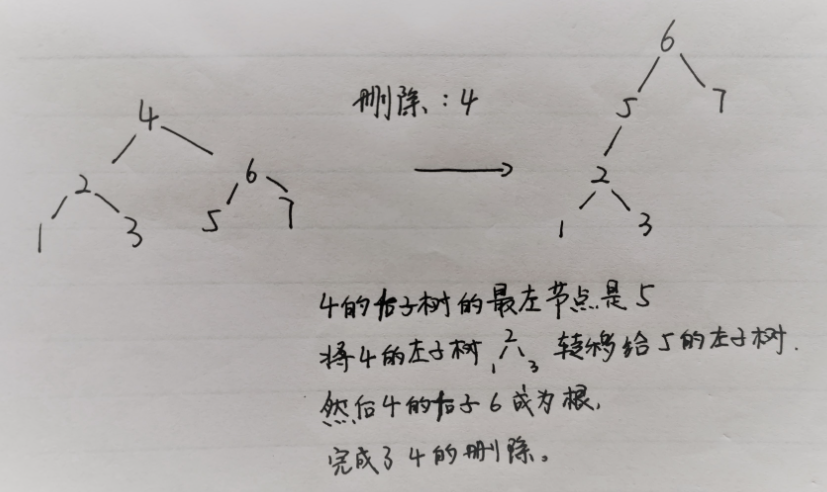 删除：4
4
2
6
1
3
5
7
6
5
7
2
1
3
4的右子树的最左节点是5
将4的左子树 2 1 3 转移给5的左子树.
然后4的右子6成为根,
完成了4的删除。